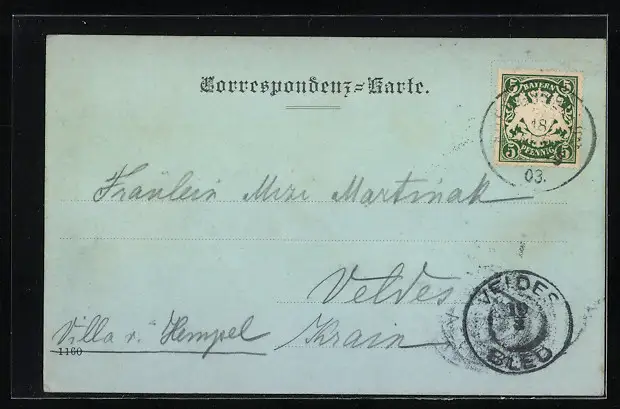 Correspondenz=Karte.
5 BAYERN 5
5 PFENNIG 5
18
03.
Fräulein Mizi Martinak
Veldes
Villa v. Hempel
Krain
VELDES
BLED
1160